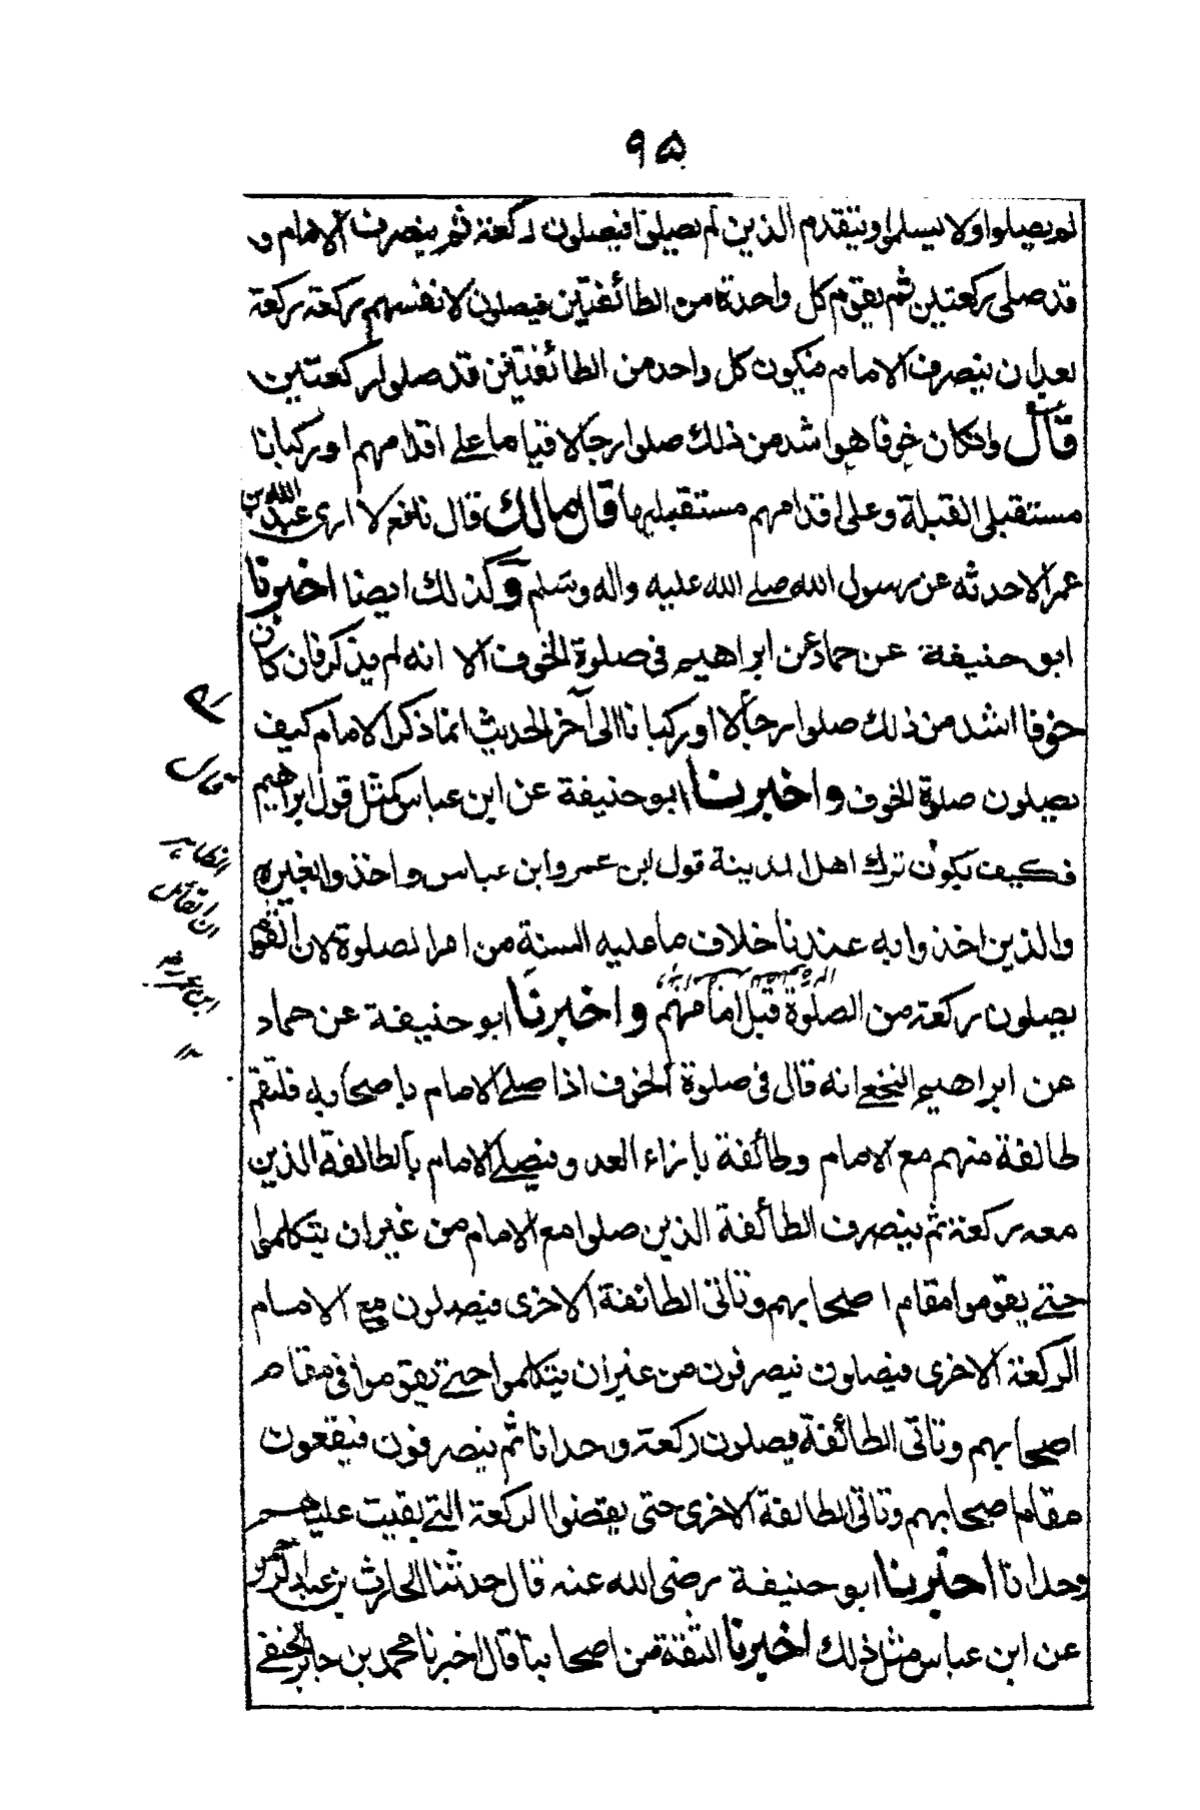 ٩٥
لم يصلوا ولا يسلموا ويتقدم الذين لم يصلوا فيصلون ركعة ثم ينصرف الامام و
قد صلى ركعتين ثم يقوم كل واحدة من الطائفتين فيصلون لانفسهم ركعة ركعة
بعد ان ينصرف الامام فيكون كل واحد من الطائفتين قد صلوا ركعتين
قال وان كان خوفا هو اشد من ذلك صلوا رجالا قياما على اقدامهم او ركبانا
مستقبلى القبلة وعلى اقدامهم مستقبليها قال مالك قال نافع لا ارى عبد الله بن
عمر الا حدثه عن رسول الله صلى الله عليه واله وسلم وكذلك ايضا اخبرنا
ابو حنيفة عن حماد عن ابراهيم فى صلوة الخوف الا انه لم يذكر فان كان
خوفا اشد من ذلك صلوا رجالا او ركبانا الى آخر الحديث انما ذكر الامام كيف
يصلون صلوة الخوف واخبرنا ابو حنيفة عن ابن عباس كمثل قول ابراهيم
فكيف يكون ترك اهل المدينة قول ابن عمر وابن عباس واخذوا بغيره
والذين اخذوا به عندنا خلاف ما عليه السنة من امر الصلوة لان القوم
يصلون ركعة من الصلوة قبل امامهم واخبرنا ابو حنيفة عن حماد
عن ابراهيم النخعى انه قال فى صلوة الخوف اذا صلى الامام باصحابه فلتقم
طائفة منهم مع الامام وطائفة بازاء العدو فيصلى الامام بالطائفة الذين
معه ركعة ثم ينصرف الطائفة الذين صلوا مع الامام من غير ان يتكلموا
حتى يقوموا مقام اصحابهم وتاتى الطائفة الاخرى فيصلون مع الامام
الركعة الاخرى فيصلون فينصرفون من غير ان يتكلموا حتى يقوموا فى مقام
اصحابهم وتاتى الطائفة فيصلون ركعة وحدانا ثم ينصرفون فيقعون
مقام اصحابهم وتاتى الطائفة الاخرى حتى يقضوا الركعة التى بقيت عليهم
وحدانا اخبرنا ابو حنيفة رضى الله عنه قال حدثنا الحارث بن عبد الرحمن
عن ابن عباس مثل ذلك اخبرنا الثقة من اصحابنا قال اخبرنا محمد بن جابر الحنفى
الظاهر
ان القائل